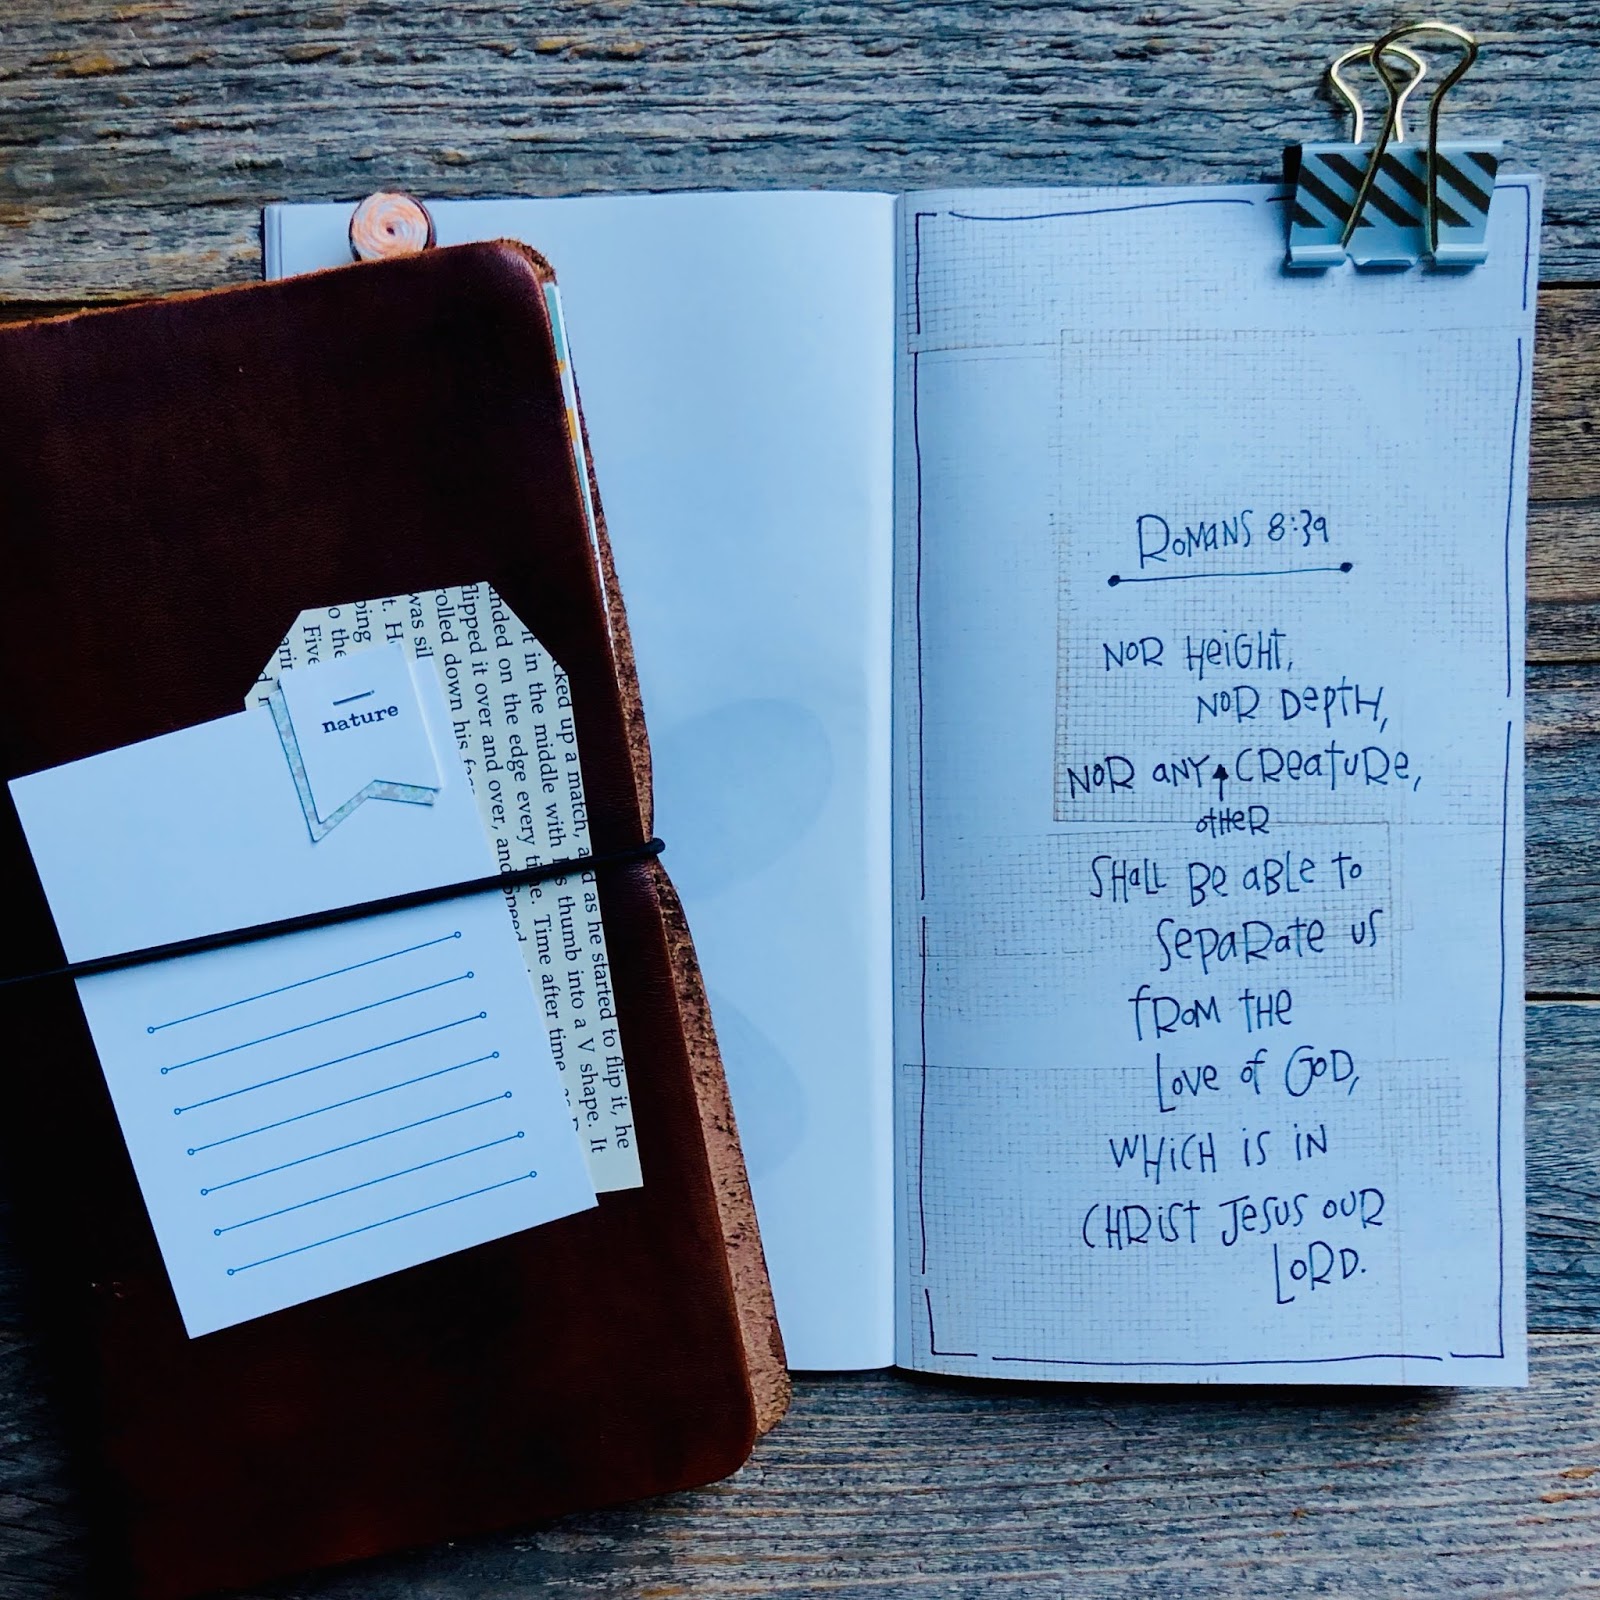 nature
up a match, as he started to flip it, he
it in the middle with thumb into a V shape. It
on the edge every Time after time, as
it over and over, and
rolled down his
was
Five
ROMANS 8:39
NOR HEIGHT,
NOR DEPTH,
NOR ANY CREATURE,
OTHER
SHALL BE ABLE TO
SEPARATE US
FROM THE
LOVE OF GOD,
WHICH IS IN
CHRIST JESUS OUR
LORD.